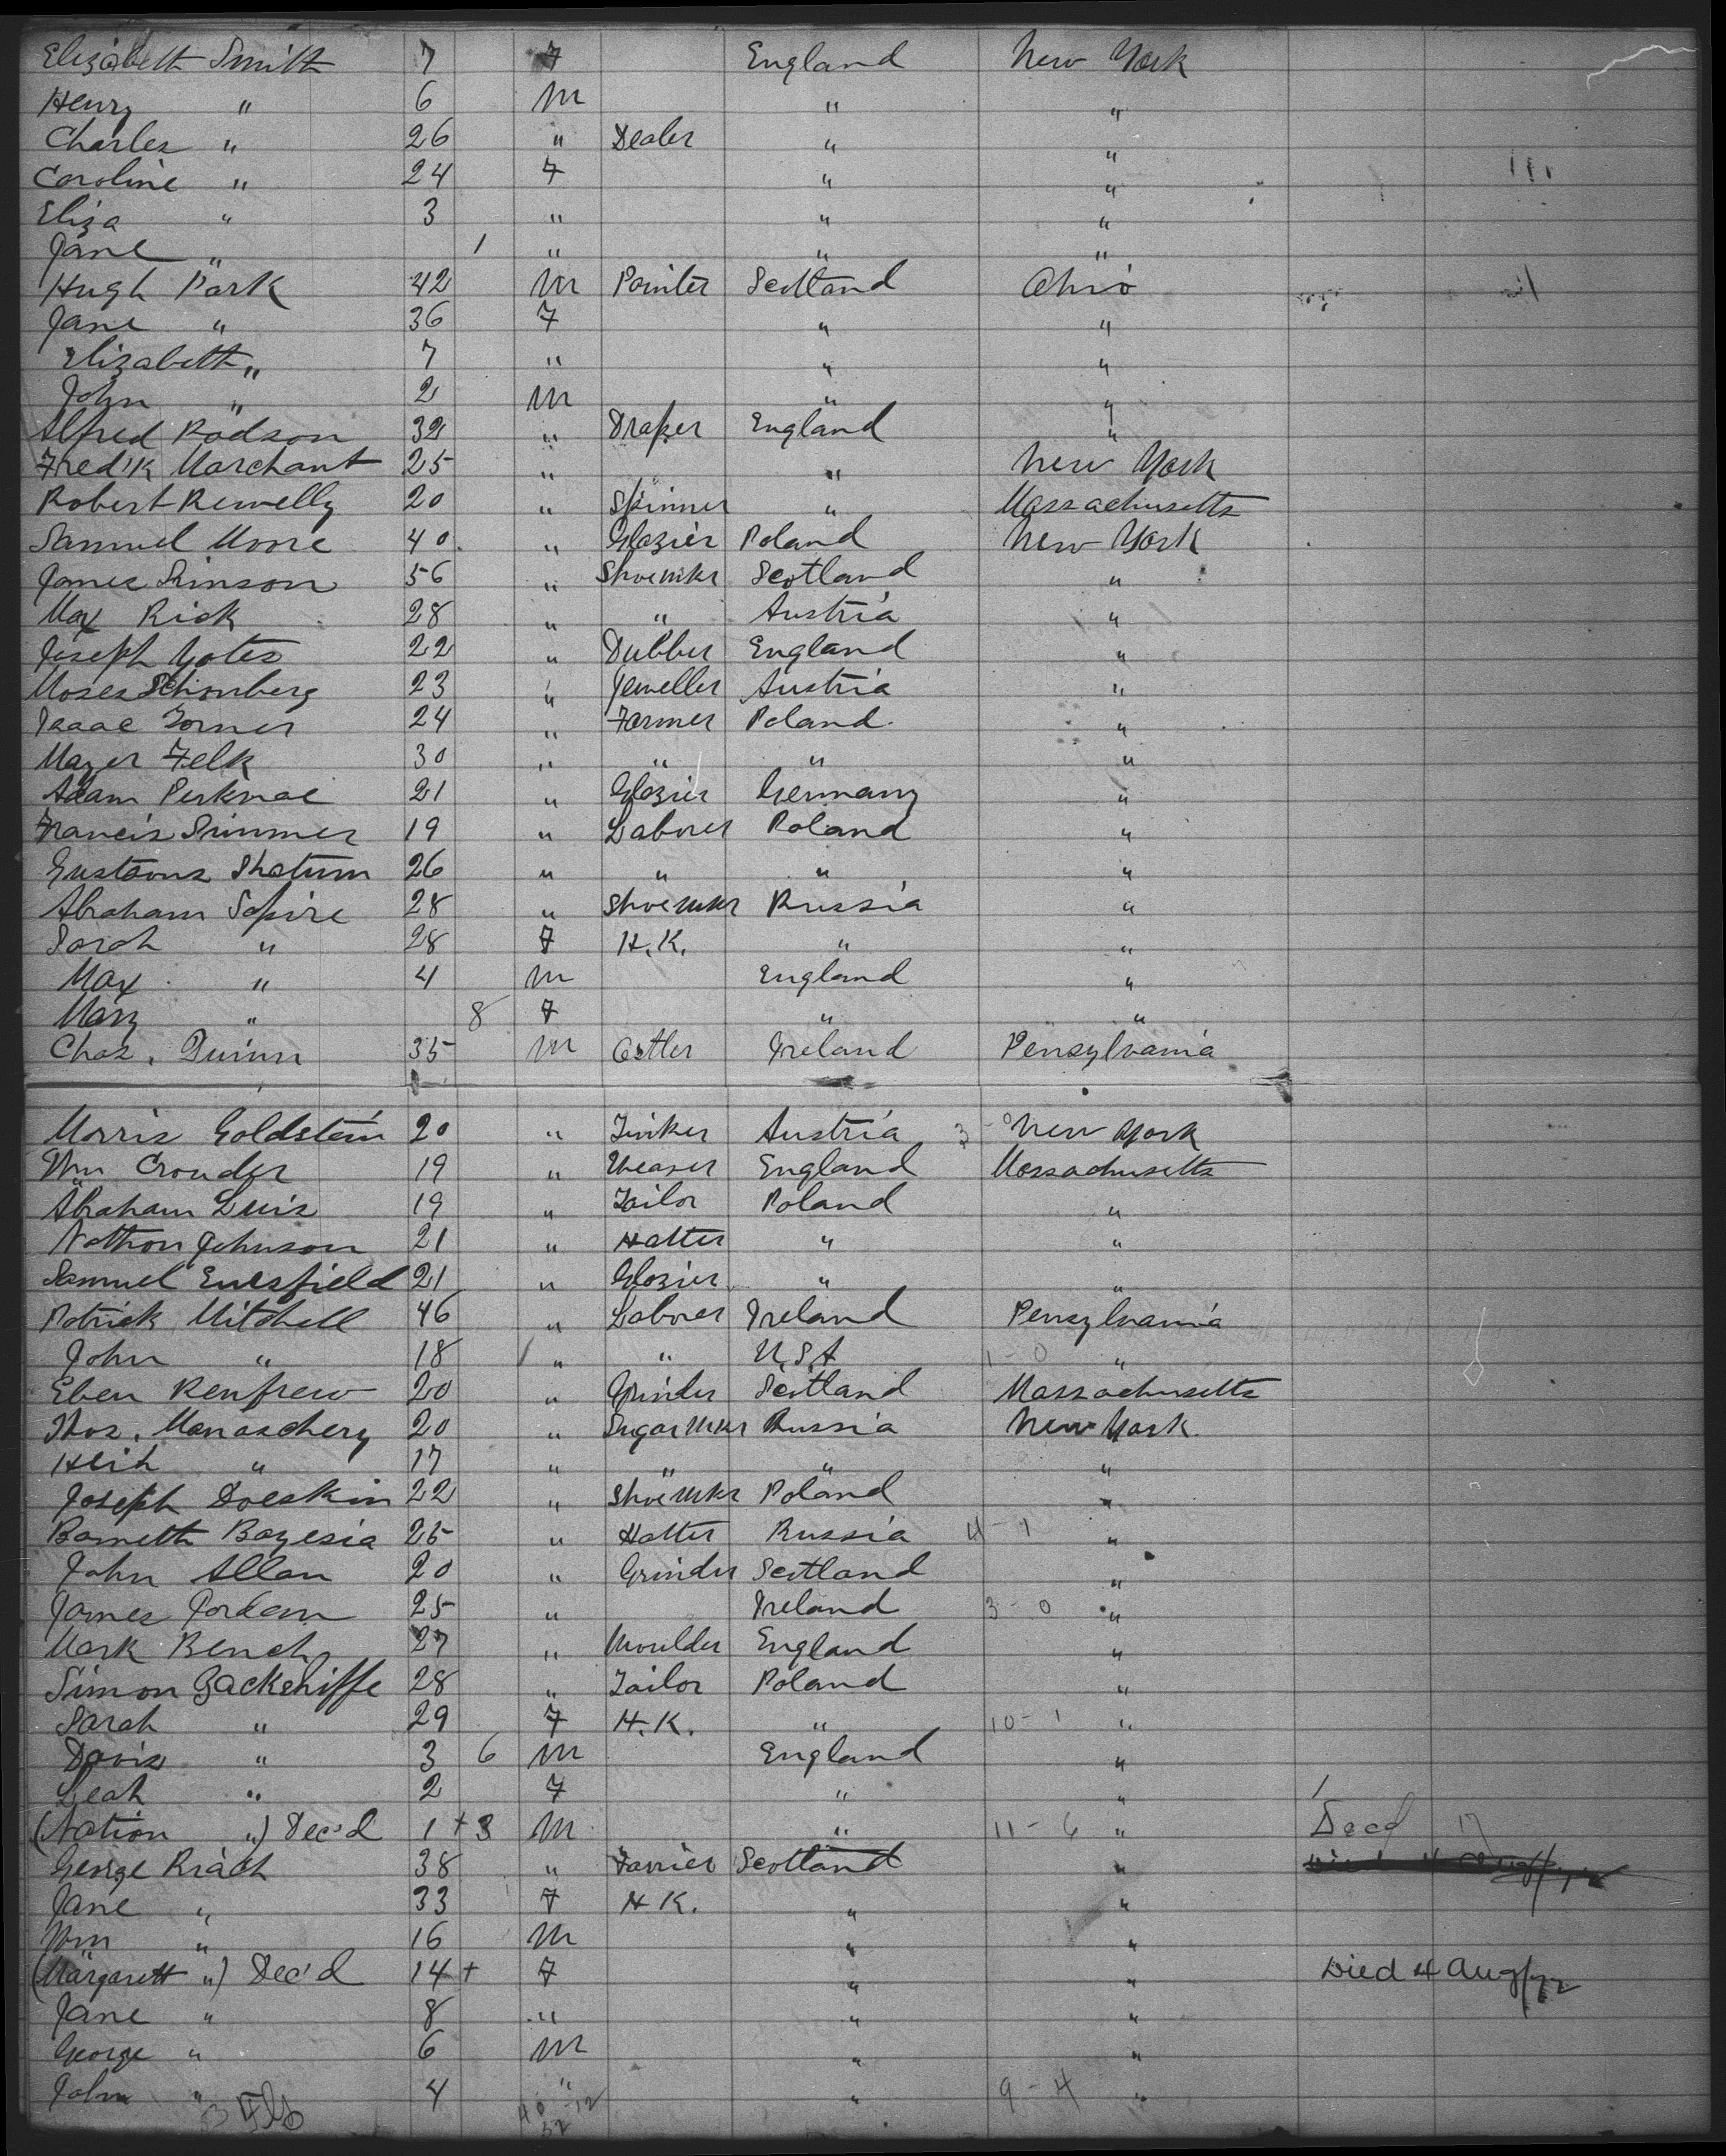 Elizabeth Smith 7 F England New York
Henry " 6 M " "
Charles " 26 " Dealer " "
Caroline " 24 F " "
Eliza " 3 " " "
Jane " 1 " " "
Hugh Park 42 M Painter Scotland Ohio
Jane " 36 F " "
Elizabeth " 7 " " "
John " 2 M " "
Alfred Rodson 32 " Draper England "
Fred'k Marchant 25 " " New York
Robert 20 " Spinner " Massachusetts
Samuel Moore 40 " Glazier Poland New York
James Simson 56 " Shoemkr Scotland "
Max Rick 28 " " Austria "
Joseph Yates 22 " Dubber England "
Moses Schonberg 23 " Jeweller Austria "
Isaac 24 " Farmer Poland "
Mayer Felk 30 " " " "
Adam 21 " Glazier Germany "
Francis 19 " Laborer Poland "
26 " " " "
Abraham Sapire 28 " Shoemkr Russia "
Sarah " 28 F H.K. " "
Max " 4 M England "
Mary " 8 F " "
Chas. Quinn 35 M Ostler Ireland Pensylvania
Morris Goldstein 20 " Tinker Austria New York
Wm Crouder 19 " Weaver England Massachusetts
Abraham Luis 19 " Tailor Poland "
Nathan Johnson 21 " Hatter " "
Samuel 21 " Glazier " "
Patrick Mitchell 46 " Laborer Ireland Pensylvania
John " 18 " " U.S.A 1-0 "
Eben Renfrew 20 " Grinder Scotland Massachusetts
Thos. Manaschery 20 " Sugar Mkr Russia New York
" 17 " " " "
Joseph Doeskin 22 " Shoemkr Poland "
Barnett Bayesia 25 " Hatter Russia 4-1 "
John Allan 20 " Grinder Scotland "
James Jordan 25 " Ireland 3-0 "
Mark Bench 27 " Moulder England "
Simon Zackshiffe 28 " Tailor Poland "
Sarah " 29 F H.K. " 10-1 "
Davis " 3 6 M England "
Leah " 2 F " "
(Nation ") Dec'd 1 + 3 M " 11-6 " Decd 17
George Riach 38 " Farrier Scotland "
Jane " 33 F H K. " "
Wm " 16 M " "
(Margarett ") Dec'd 14 + F " " Died 4 Aug/72
Jane " 8 " " "
George " 6 M " "
John " 4 " " 9-4 "
40-12
52